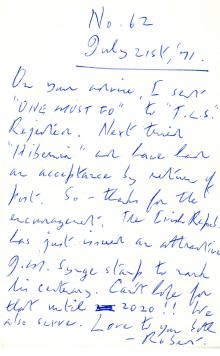 No. 62
July 21st, '71.
On your advice, I sent
"ONE MUST GO" to "T.L.S."
Rejection. Next tried
"Hibernia" and have had
an acceptance by return of
post. So - thanks for the
encouragement. The Irish Republ.
has just issued an attractive
J.M. Synge stamp to mark
his centenary. Can't hope for
that until 2020!! We
also serve. Love to you both
- Robert.